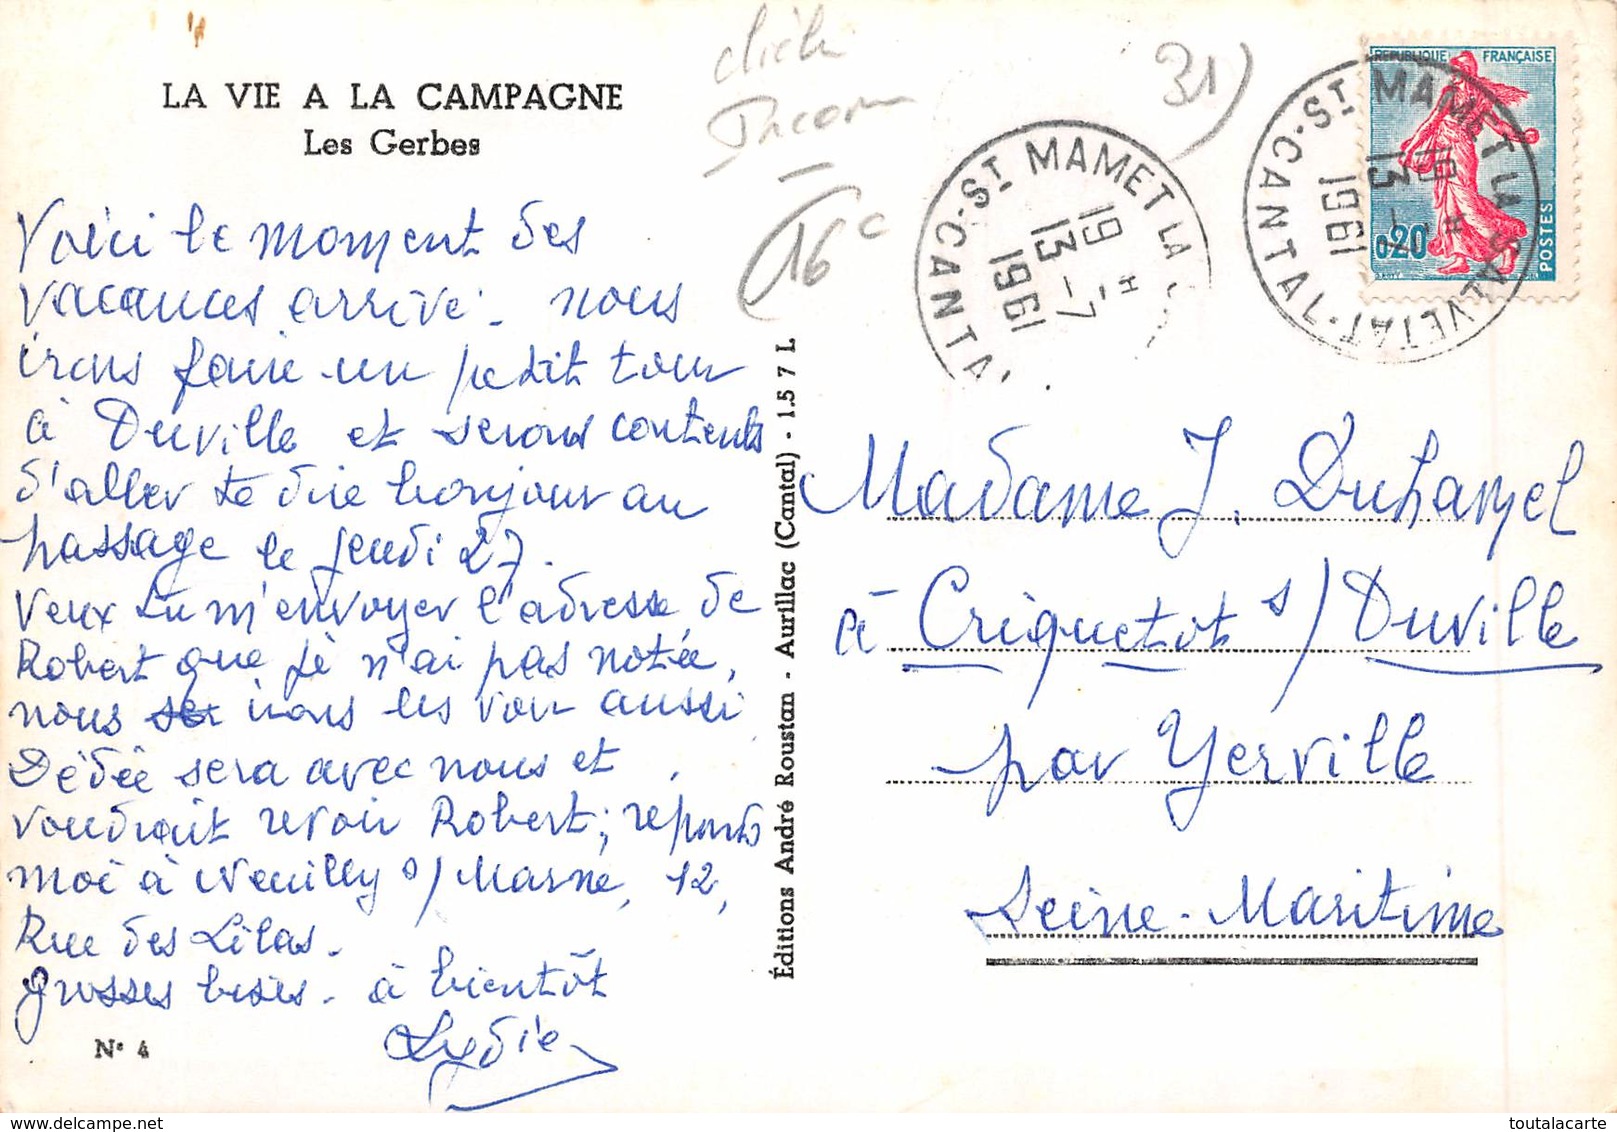 LA VIE A LA CAMPAGNE
Les Gerbes
Voici le moment des
vacances arrivé. nous
irons faire un petit tour
à Duville et serons contents
d'aller te dire bonjour au
passage le jeudi 27.
Veux tu m'envoyer l'adresse de
Robert que je n'ai pas notée,
nous irons les voir aussi
Dédée sera avec nous et
voudrait revoir Robert; reponds
moi à Neuilly s/Marne, 12,
Rue des Lilas.
grosses bises. à bientôt
Lydie
N° 4
Éditions André Roustan - Aurillac (Cantal) - 1.5 7 L
cliché
16c
31)
ST MAMET LA
CANTAL
19 H
13 - 7
1961
ST MAMET LA SALVETAT
CANTAL
19 H
13 - 7
1961
REPUBLIQUE FRANÇAISE
0,20
POSTES
Madame J. Duhamel
à Criquetot s/ Duville
par Yerville
Seine-Maritime
toutalacarte